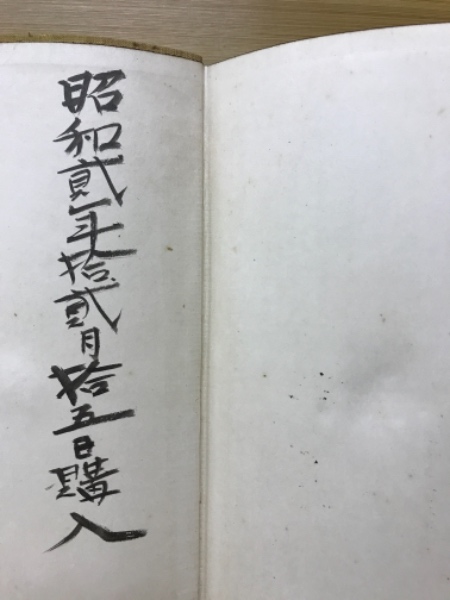 昭和貳年拾貳月拾五日購入